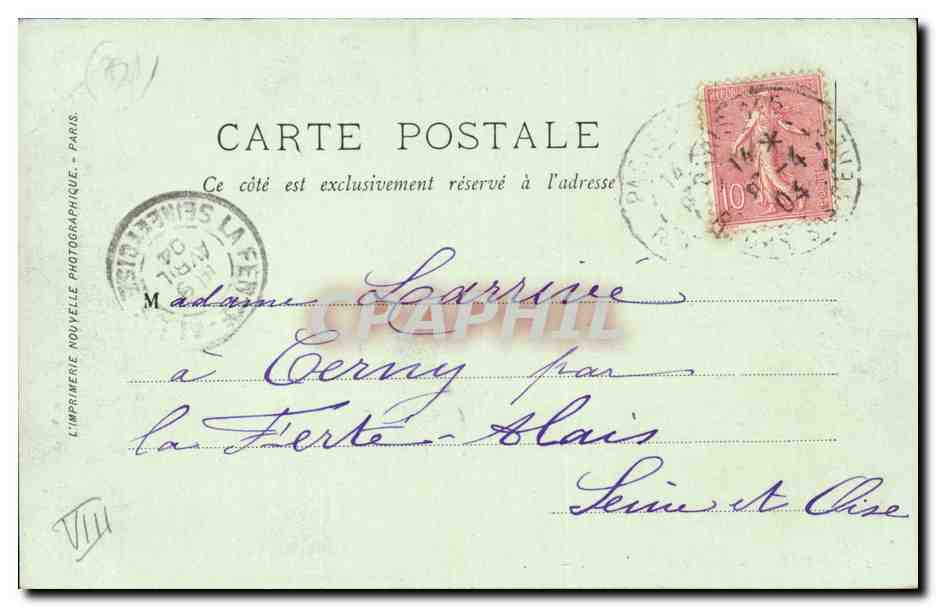 (81)
CARTE POSTALE
Ce côté est exclusivement réservé à l'adresse
L'IMPRIMERIE NOUVELLE PHOTOGRAPHIQUE. - PARIS.
10
14
14 * 
-4
04
PARIS
LA FERTE-
SEINE ET OISE
AVRIL
04
Madame Larrivé
CPAPHIL
à Cerny par
la Ferté-Alais
Seine et Oise
VIII